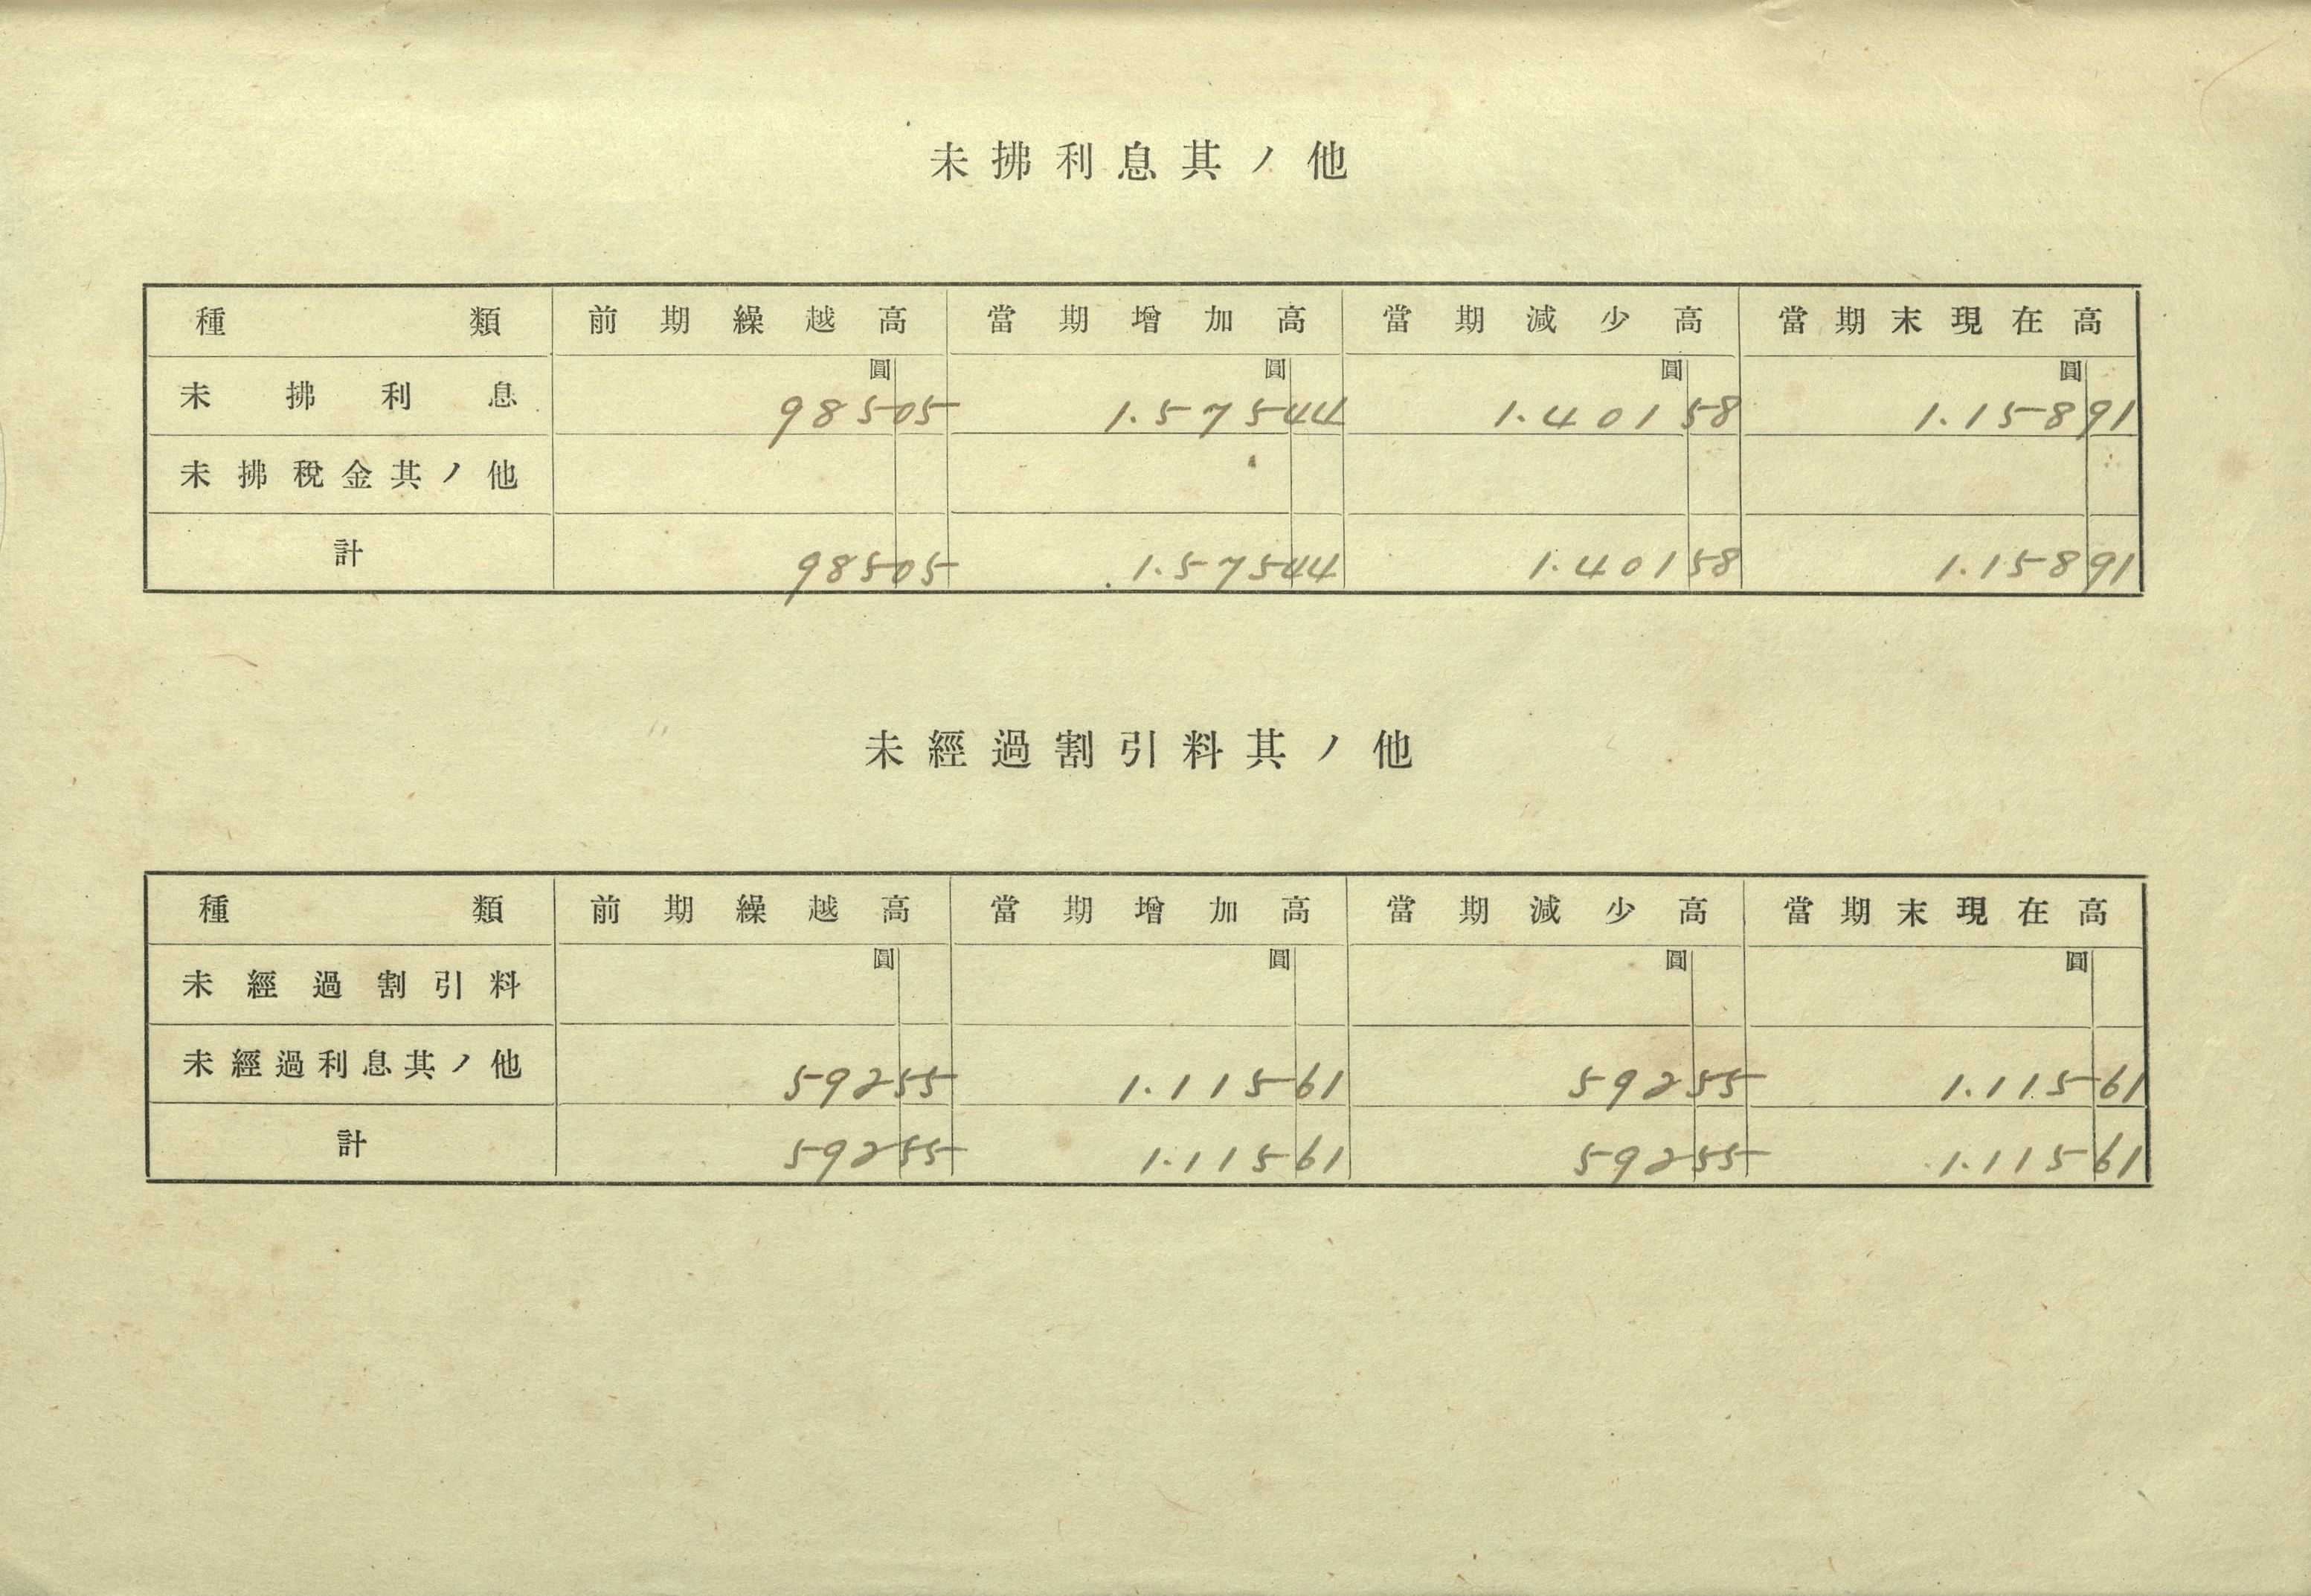 未拂利息其ノ他
種類 前期繰越高 當期增加高 當期減少高 當期末現在高
圓 圓 圓 圓
未拂利息 985 05 1.575 44 1.401 58 1.158 91
未拂稅金其ノ他
計 985 05 1.575 44 1.401 58 1.158 91
未經過割引料其ノ他
種類 前期繰越高 當期增加高 當期減少高 當期末現在高
圓 圓 圓 圓
未經過割引料
未經過利息其ノ他 592 55 1.115 61 592 55 1.115 61
計 592 55 1.115 61 592 55 1.115 61